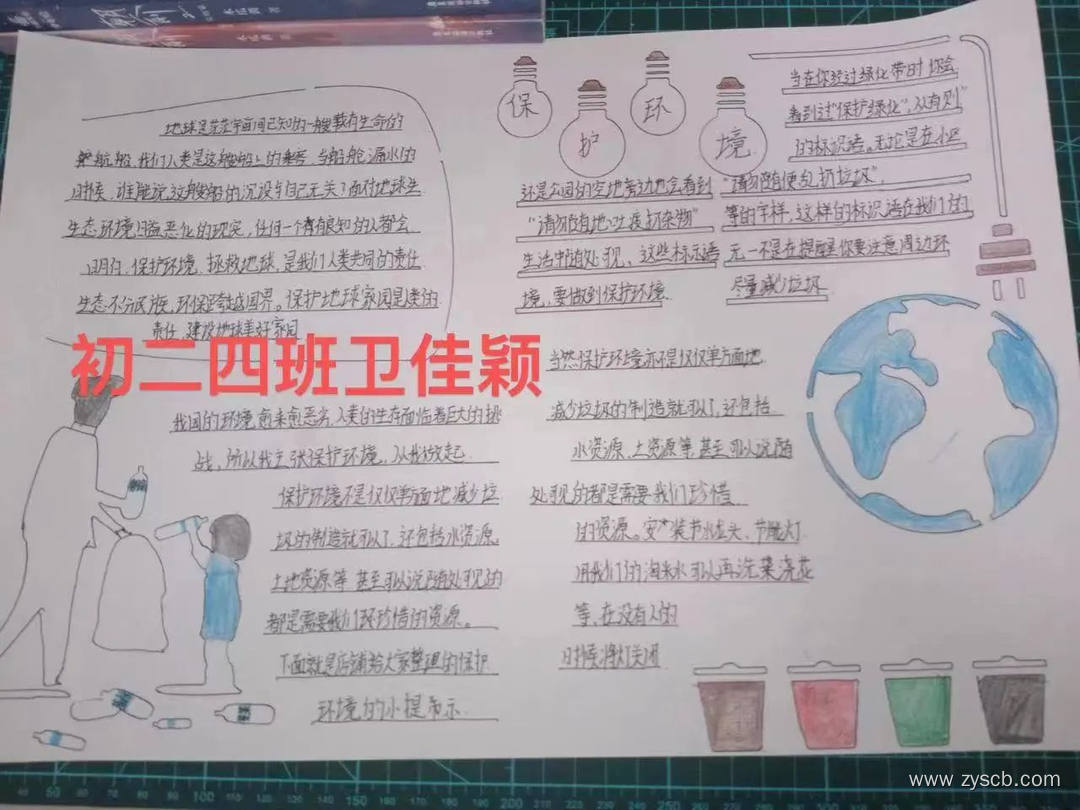 保护环境
地球是茫茫宇宙间已知的一艘载有生命的
航船，我们人类是这艘船上的乘客，当船舱漏水的
时候，谁能说这艘船的沉没与自己无关？面对地球生
生态环境日益恶化的现实，任何一个有良知的人都会
明白，保护环境，拯救地球，是我们人类共同的责任
生态不分民族，环保跨越国界。保护地球家园是我的
责任，建设地球美好家园
当在你经过绿化带时你会
看到过“保护绿化”，从有则”
的标识语。无论是在小区
还是公园的空地旁边也会看到“请勿随便乱扔垃圾”，
“请勿随地吐痰扔杂物”等的字样，这样的标识语在我们的
生活中随处处现、这些标示语无一不是在提醒你要注意周边环
境，要做到保护环境尽量减少垃圾
初二四班卫佳颖
我国的环境愈来愈恶劣，人类的生存面临着巨大的挑
战，所以我主张保护环境，从我做起
保护环境不是仅仅单方面地减少垃
圾的制造就可以了，还包括水资源
土地资源等甚至可以说随处处现的
都是需要我们珍惜的资源。
下面就是店铺给大家整理的保护
环境的小提示
当然保护环境亦不是仅仅单方面地
减少垃圾的制造就可以了，还包括
水资源、土资源等，甚至可以说随
处现的都是需要我们珍惜
的资源。安装节水龙头、节能灯
用我们的淘米水可以再洗菜浇花
等，在没有人的
时候将灯关闭
www.zyscb.com